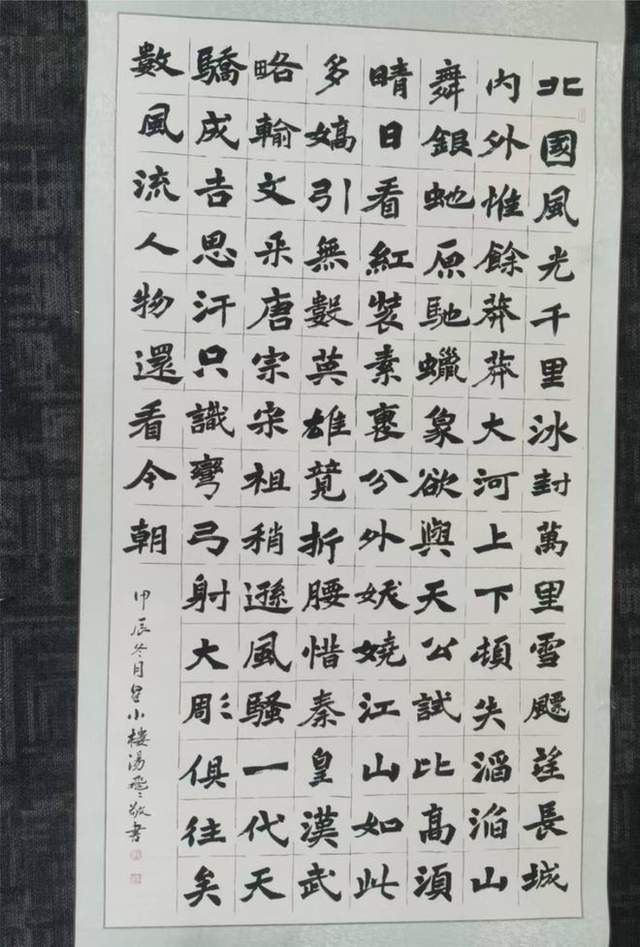 北國風光千里冰封萬里雪飄望長城
内外惟餘莽莽大河上下頓失滔滔山
舞銀虵原馳蠟象欲與天公試比高須
晴日看紅裝素裹分外妖嬈江山如此
多嬌引無數英雄竟折腰惜秦皇漢武
略輸文采唐宗宋祖稍遜風騷一代天
驕成吉思汗只識彎弓射大彫俱往矣
數風流人物還看今朝
甲辰冬月小樓湯敬書